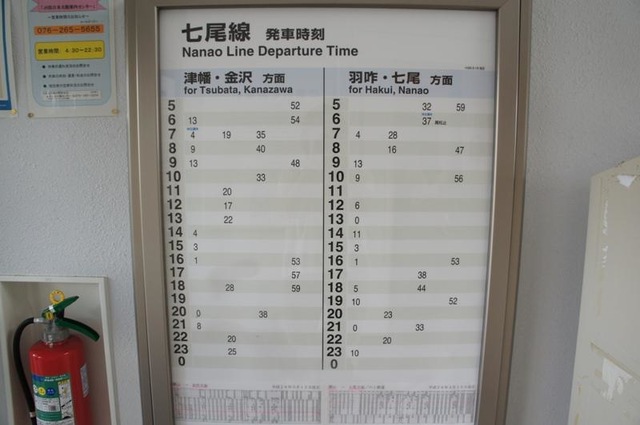 076-265-5655
営業時間 4:30~22:30
七尾線 発車時刻
Nanao Line Departure Time
津幡・金沢 方面
for Tsubata, Kanazawa
5 52
6 13 54
7 4 19 35
8 9 40
9 13 48
10 33
11 20
12 17
13 22
14 4
15 3
16 1 53
17 57
18 28 59
19
20 0 38
21 8
22 20
23 25
0
羽咋・七尾 方面
for Hakui, Nanao
5 32 59
6 37 高松止
7 4 28
8 16 47
9 13
10 9 56
11
12 6
13 0
14 11
15 3
16 1 53
17 38
18 5 44
19 10 52
20 23
21 0 33
22 20
23 10
0